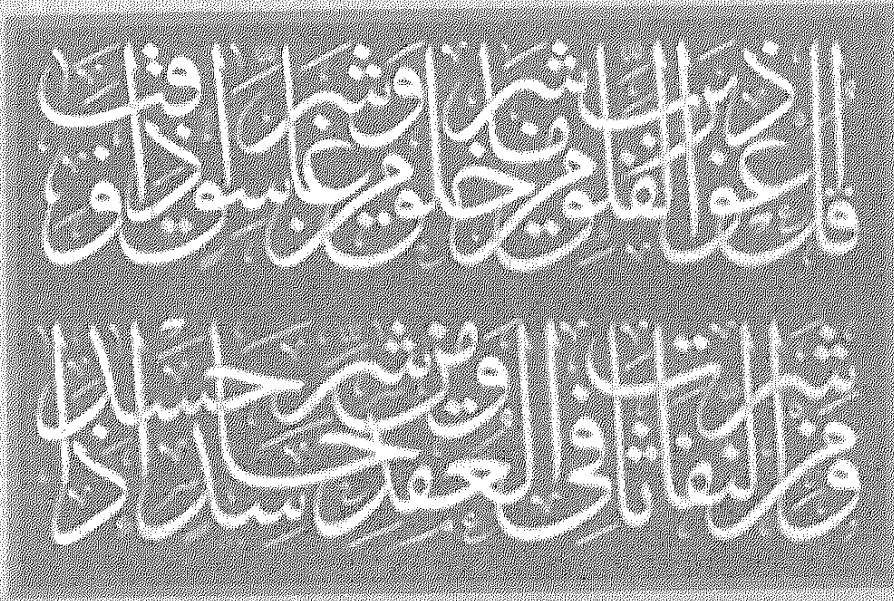 قل أعوذ برب الفلق من شر ما خلق ومن شر غاسق إذا وقب
ومن شر النفاثات في العقد ومن شر حاسد إذا حسد